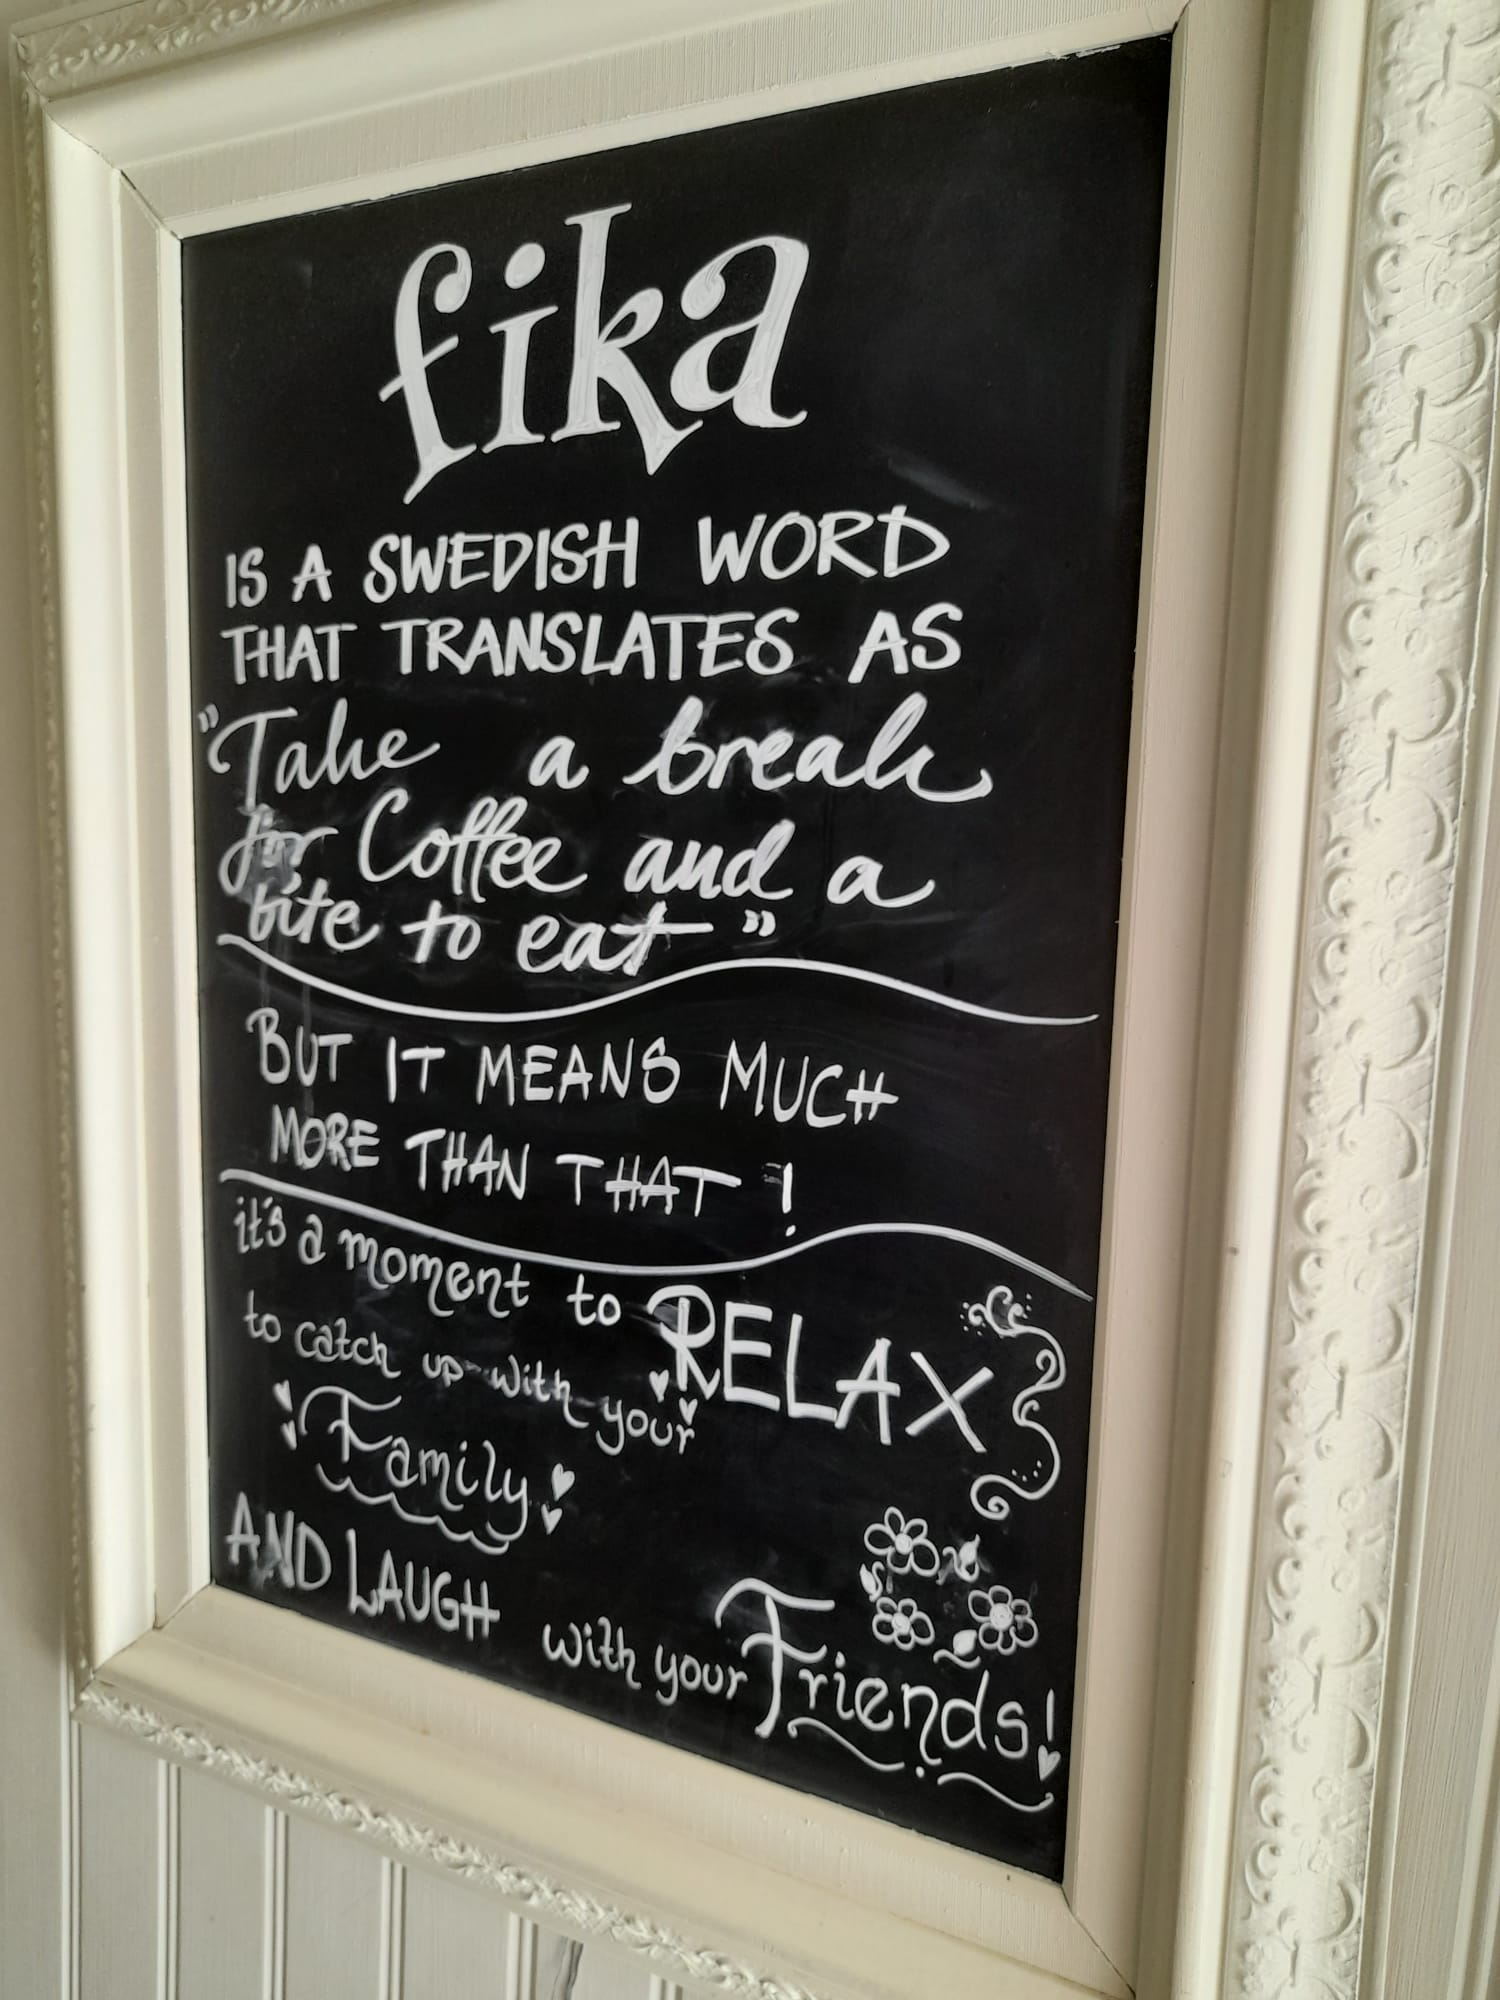 fika
IS A SWEDISH WORD
THAT TRANSLATES AS
"Take a break
for Coffee and a
bite to eat"
BUT IT MEANS MUCH
MORE THAN THAT!
it's a moment to RELAX
to catch up with your
Family
AND LAUGH with your Friends!